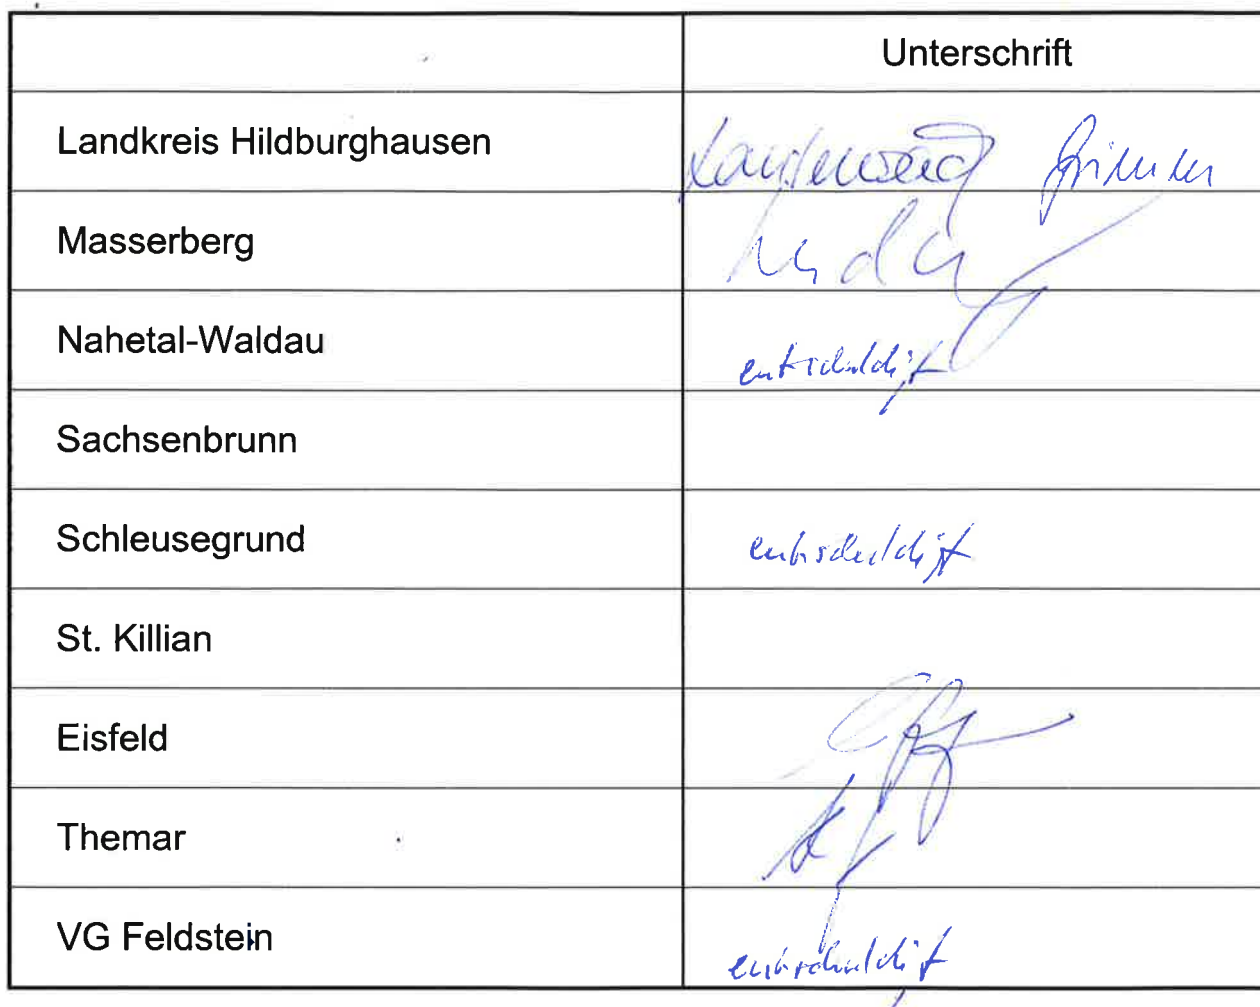 Unterschrift
Landkreis Hildburghausen
Masserberg
Nahetal-Waldau entschuldigt
Sachsenbrunn
Schleusegrund entschuldigt
St. Killian
Eisfeld
Themar
VG Feldstein entschuldigt